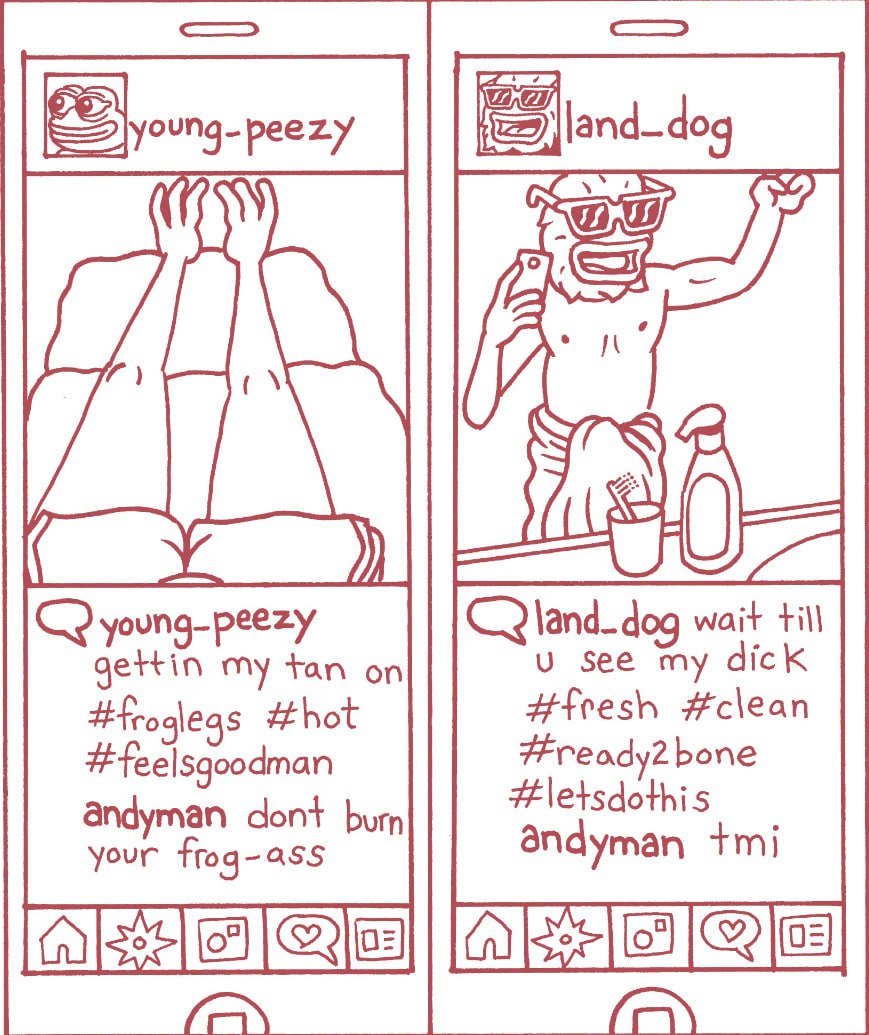 young_peezy
young_peezy
gettin my tan on
#froglegs #hot
#feelsgoodman
andyman dont burn
your frog-ass
land_dog
land_dog wait till
u see my dick
#fresh #clean
#ready2bone
#letsdothis
andyman tmi